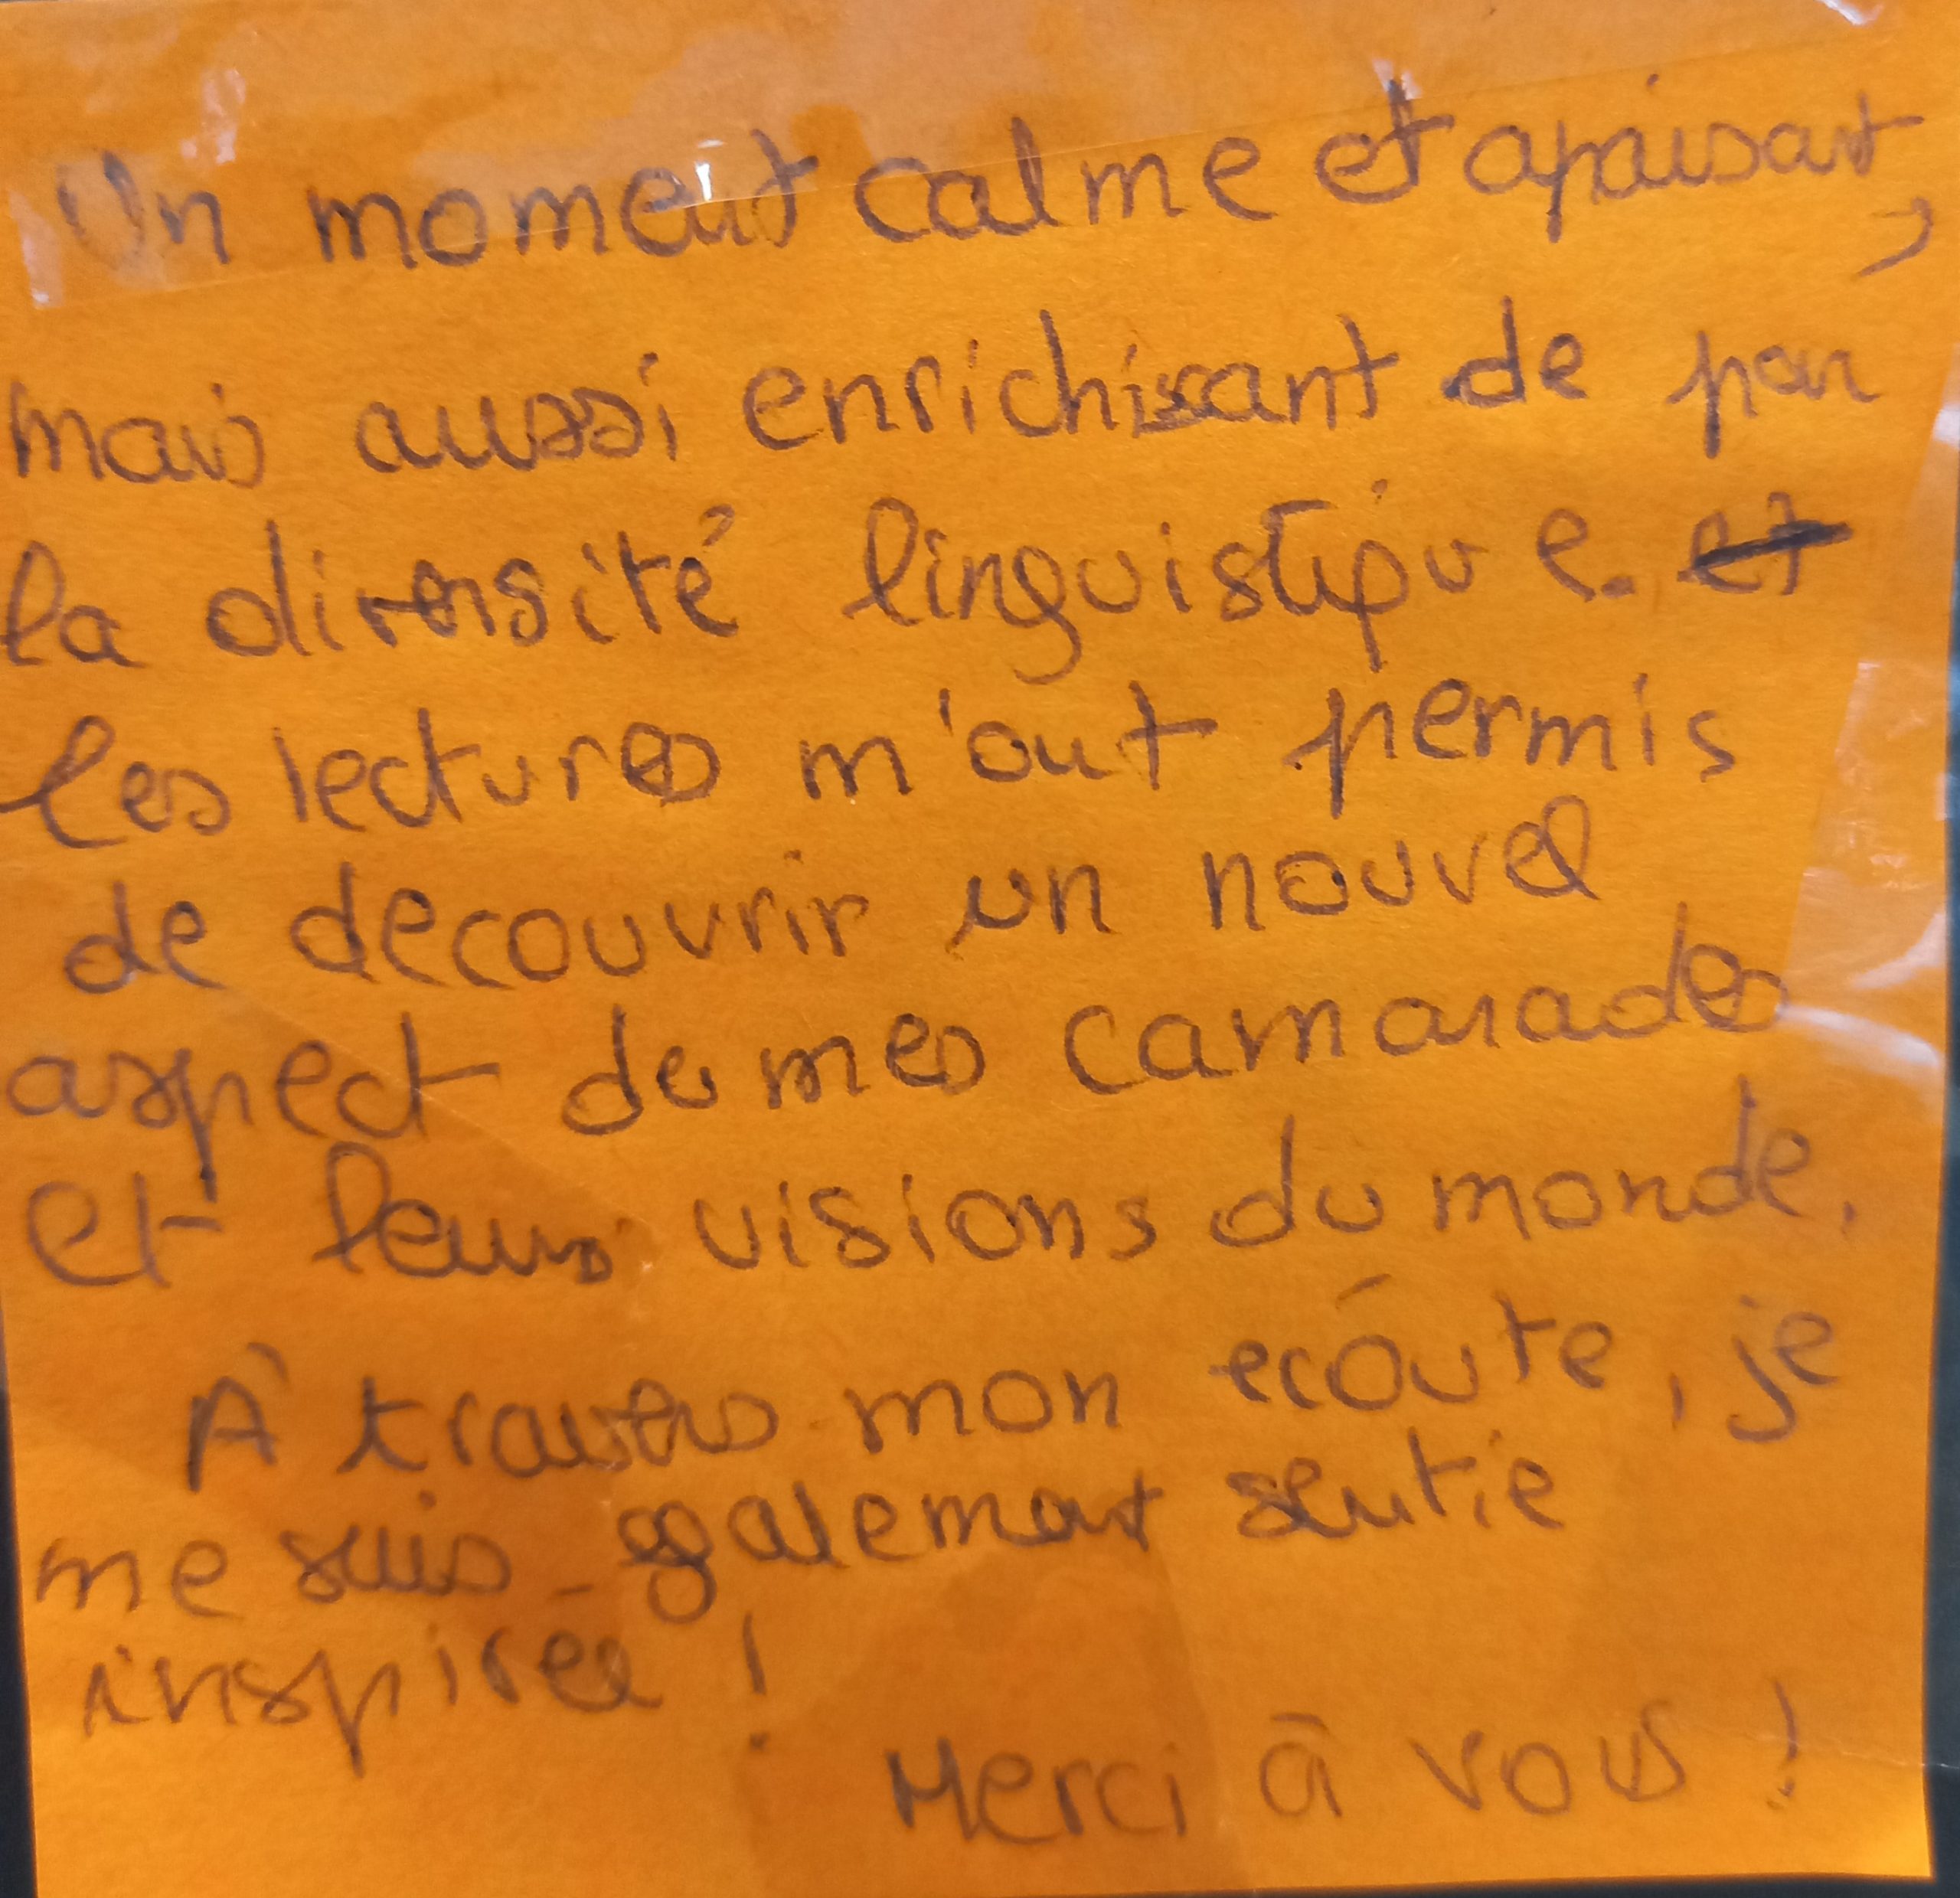 Un moment calme et apaisant,
mais aussi enrichissant de par
la diversité linguistique. et
les lectures m'ont permis
de decouvrir un nouvel
aspect de mes camarades
et leurs visions du monde.
À travers mon ecoute, je
me suis egalement sentie
inspirée !
Merci à vous !